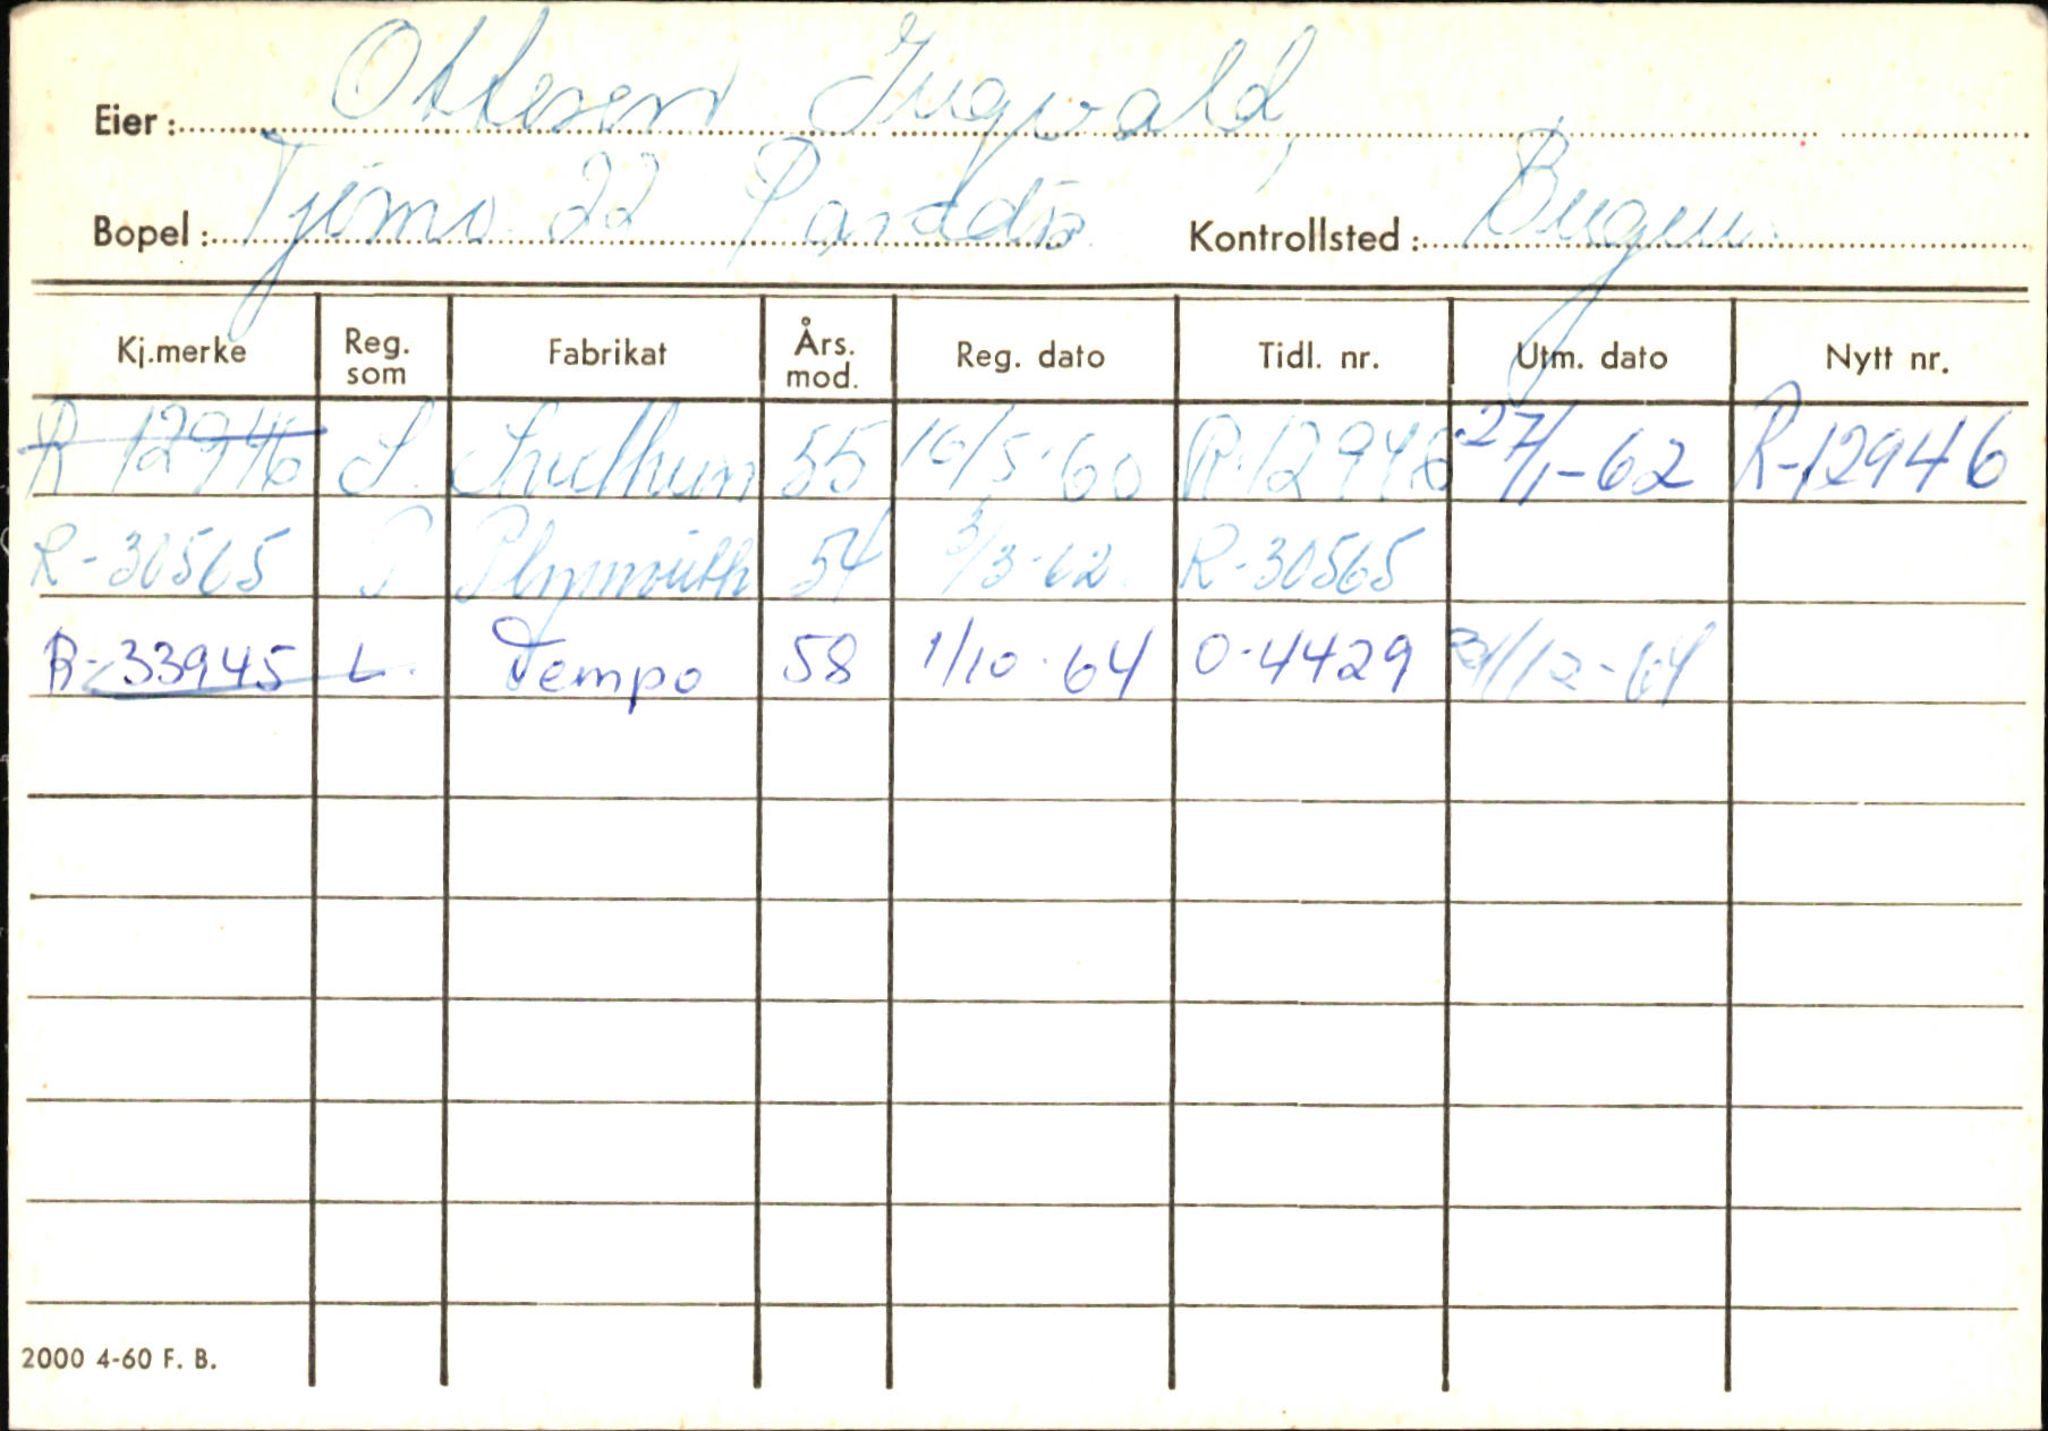 Eier: Ottesen Ingvald,
Bopel: Tjömo 22 Paradis Kontrollsted: Bergen.
Kj.merke Reg. som Fabrikat Års. mod. Reg. dato Tidl. nr. Utm. dato Nytt nr.
R 12946 55 10/5-60 R-12946 27/1-62 R-12946
R-30565 P Plymouth 54 3/3-62. R-30565
R-33945 L. Tempo 58 1/10-64 O-4429 31/12-64
2000 4-60 F. B.